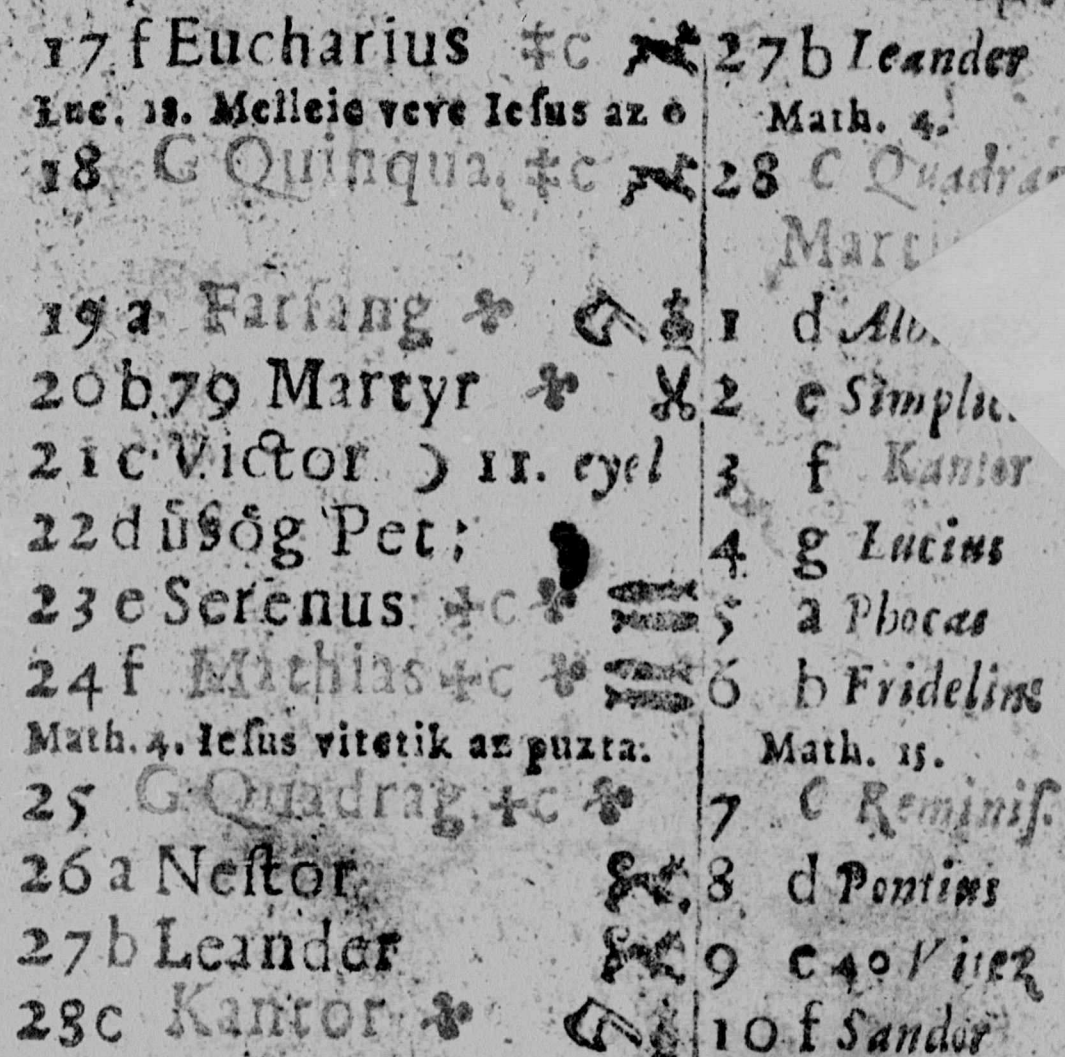 17 f Eucharius ‡c
Luc. 18. Melleie veve Iesus az ö
18 G Quinqua. ‡c
19 a Farsang
20 b 79 Martyr
21 c Victor ☽ 11. eyel
22 d Pet:
23 e Serenus +c
24 f Mathias +c
Math. 4. Ieſus vitetik az puzta:
25 G Quadrag. +c
26 a Neſtor
27 b Leander
28 c Kantor
27 b Leander
Math. 4.
28 C Quadrag
Marti
1 d Alb
2 e Simplic.
3 f Kantor
4 g Lucius
5 a Phocas
6 b Fridelins
Math. 15.
7 C Reminiſ.
8 d Pontius
9 e 40 Vitez
10 f Sandor